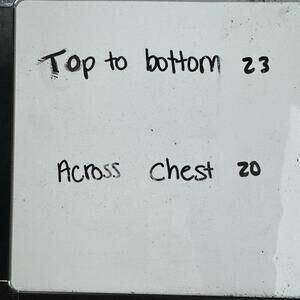 Top to bottom 23
Across Chest 20